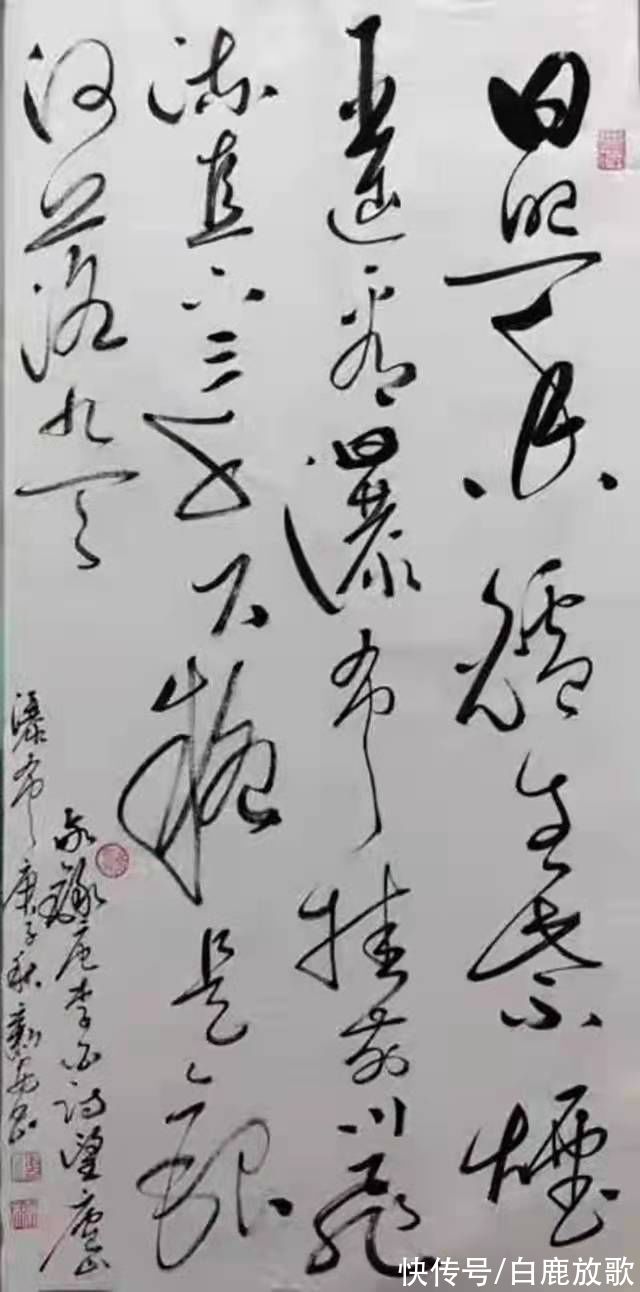 日照香爐生紫煙
遥看瀑布挂前川飛
流直下三千尺疑是銀
河落九天
錄唐李白詩望廬山
瀑布庚子秋
快传号/白鹿放歌